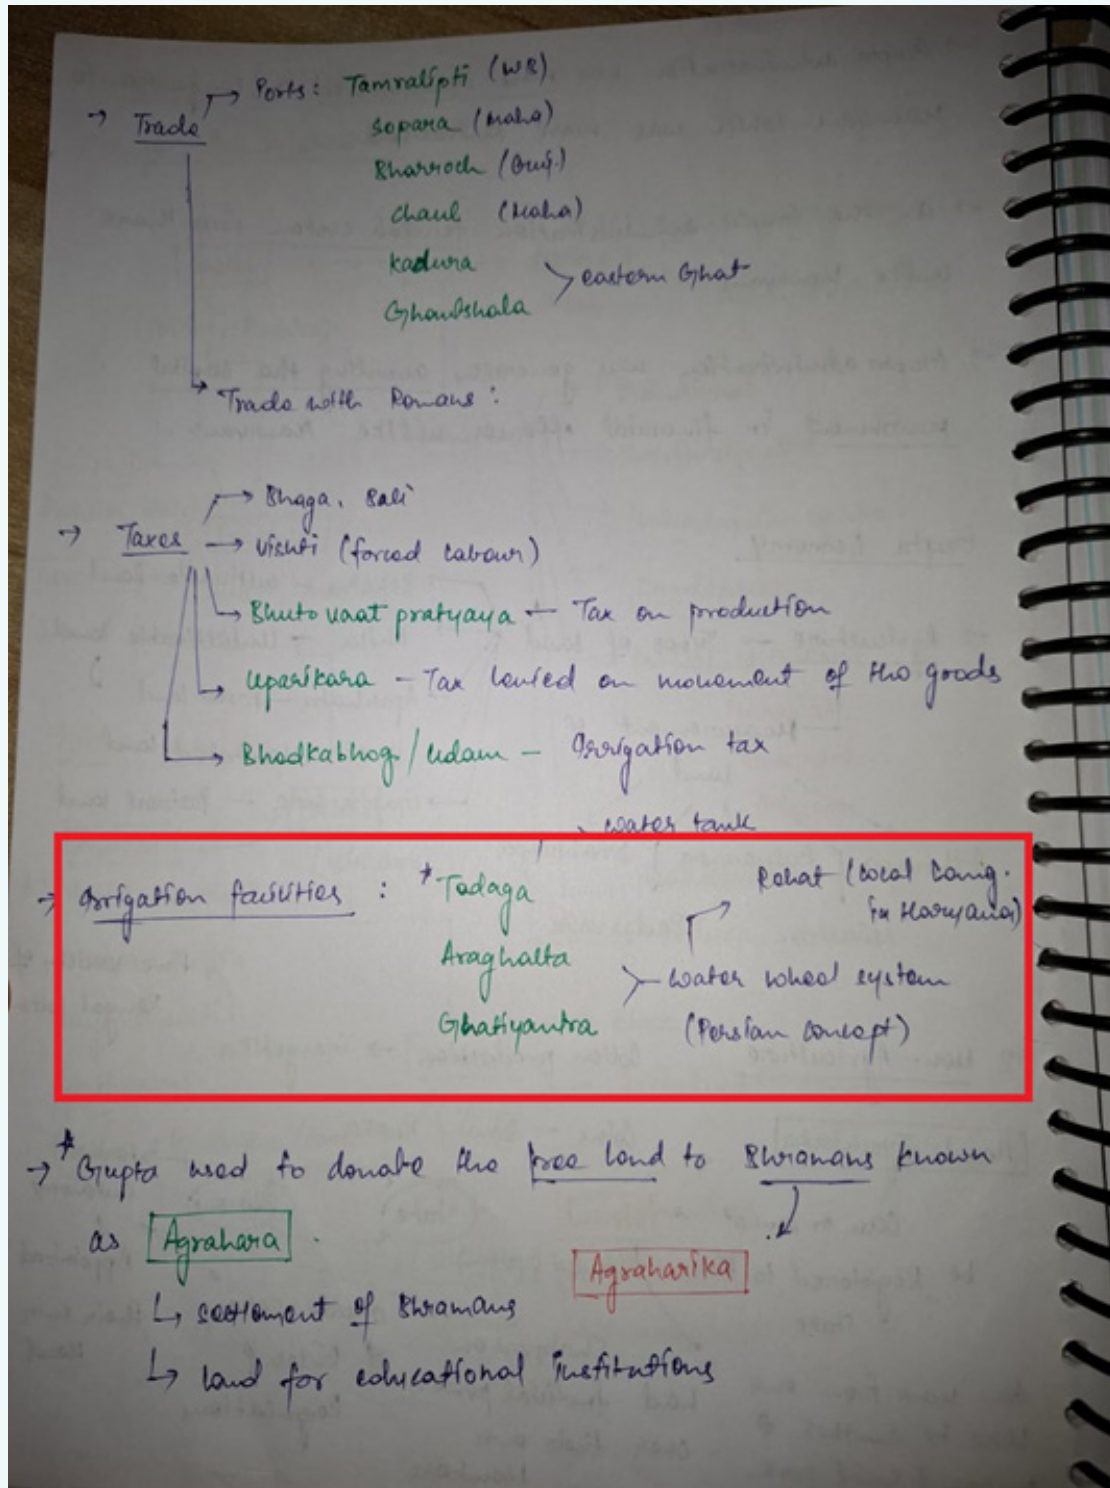 → Trade → Ports: Tamralipti (WB)
Sopara (Maha)
Bharroch (Guj.)
Chaul (Maha)
Kadura
Ghantshala > eastern Ghat
Trade with Romans:
→ Taxes → Bhaga, Bali
→ Vishti (forced labour)
→ Bhuto vaat pratyaya ← Tax on production
→ Uparikara – Tax levied on movement of the goods
→ Bhodkabhog / Udam – Irrigation tax
water tank
→ Irrigation facilities : * Tadaga
Rahat (local lang. in Haryana)
Araghatta
> water wheel system
Ghatiyantra (Persian concept)
→ * Gupta used to donate the free land to Bhramans known
as Agrahara .
Agraharika
↳ settlement of Bhramans
↳ land for educational institutions